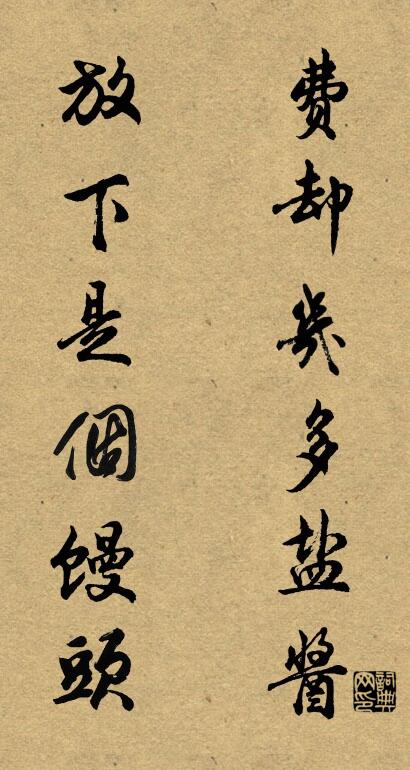 費却幾多盐醬
放下是個饅頭
詞典网印